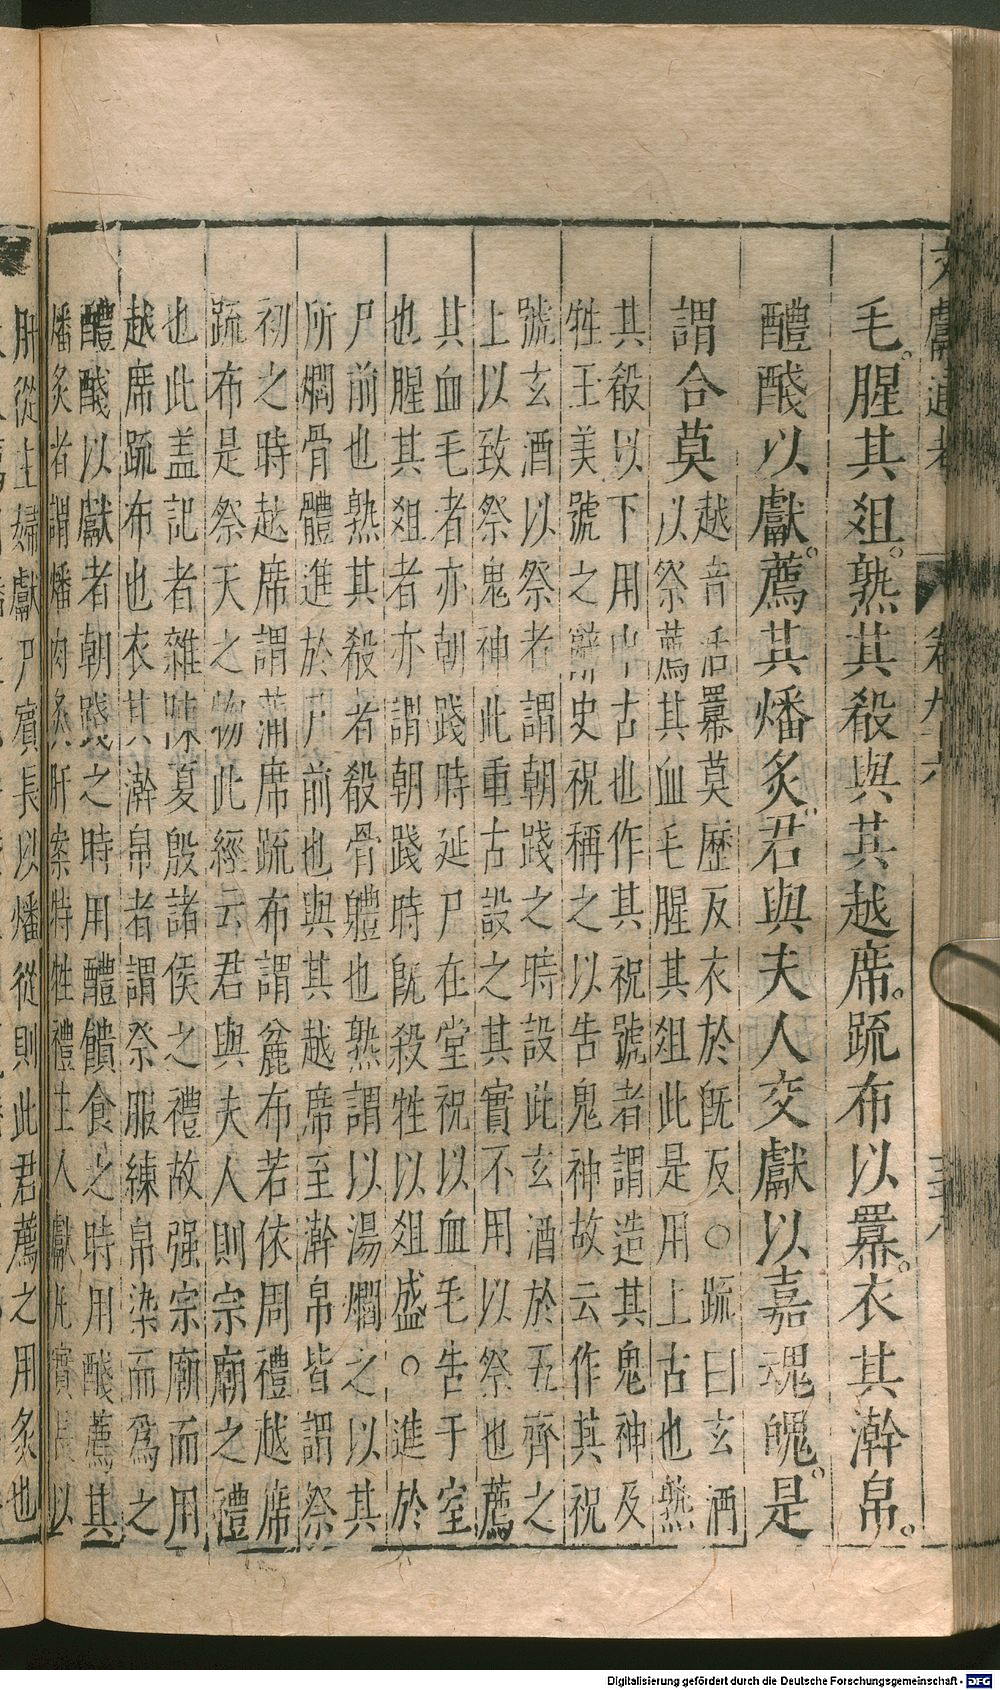 文獻通考 卷九十六 三十八
毛。腥其俎。熟其殽與其越席。疏布以羃。衣其澣帛。
醴醆以獻。薦其燔炙。君與夫人交獻以嘉魂魄。是
謂合莫
越音活羃莫歷反衣於旣反○疏曰玄酒
以祭薦其血毛腥其俎此是用上古也熟
其殽以下用中古也作其祝號者謂造其鬼神及
牲玉美號之辭史祝稱之以告鬼神故云作其祝
號玄酒以祭者謂朝踐之時設此玄酒於五齊之
上以致祭鬼神此重古設之其實不用以祭也薦
其血毛者亦朝踐時延尸在堂祝以血毛告于室
也腥其俎者亦謂朝踐時旣殺牲以俎盛○進於
尸前也熟其殽者殽骨軆也熟謂以湯爓之以其
所爓骨體進於尸前也與其越席至澣帛皆謂祭
初之時越席謂蒲席疏布謂麄布若依周禮越席
疏布是祭天之物此經云君與夫人則宗廟之禮
也此盖記者雜陳夏殷諸侯之禮故强宗廟而用
越席疏布也衣其澣帛者謂祭服練帛染而爲之
醴醆以獻者朝踐之時用醴饋食之時用醆薦其
燔炙者謂燔肉炙肝案特牲禮主人獻尸賓長以
肝從主婦獻尸賓長以燔從則此君薦之用炙也
Digitalisierung gefördert durch die Deutsche Forschungsgemeinschaft - DFG